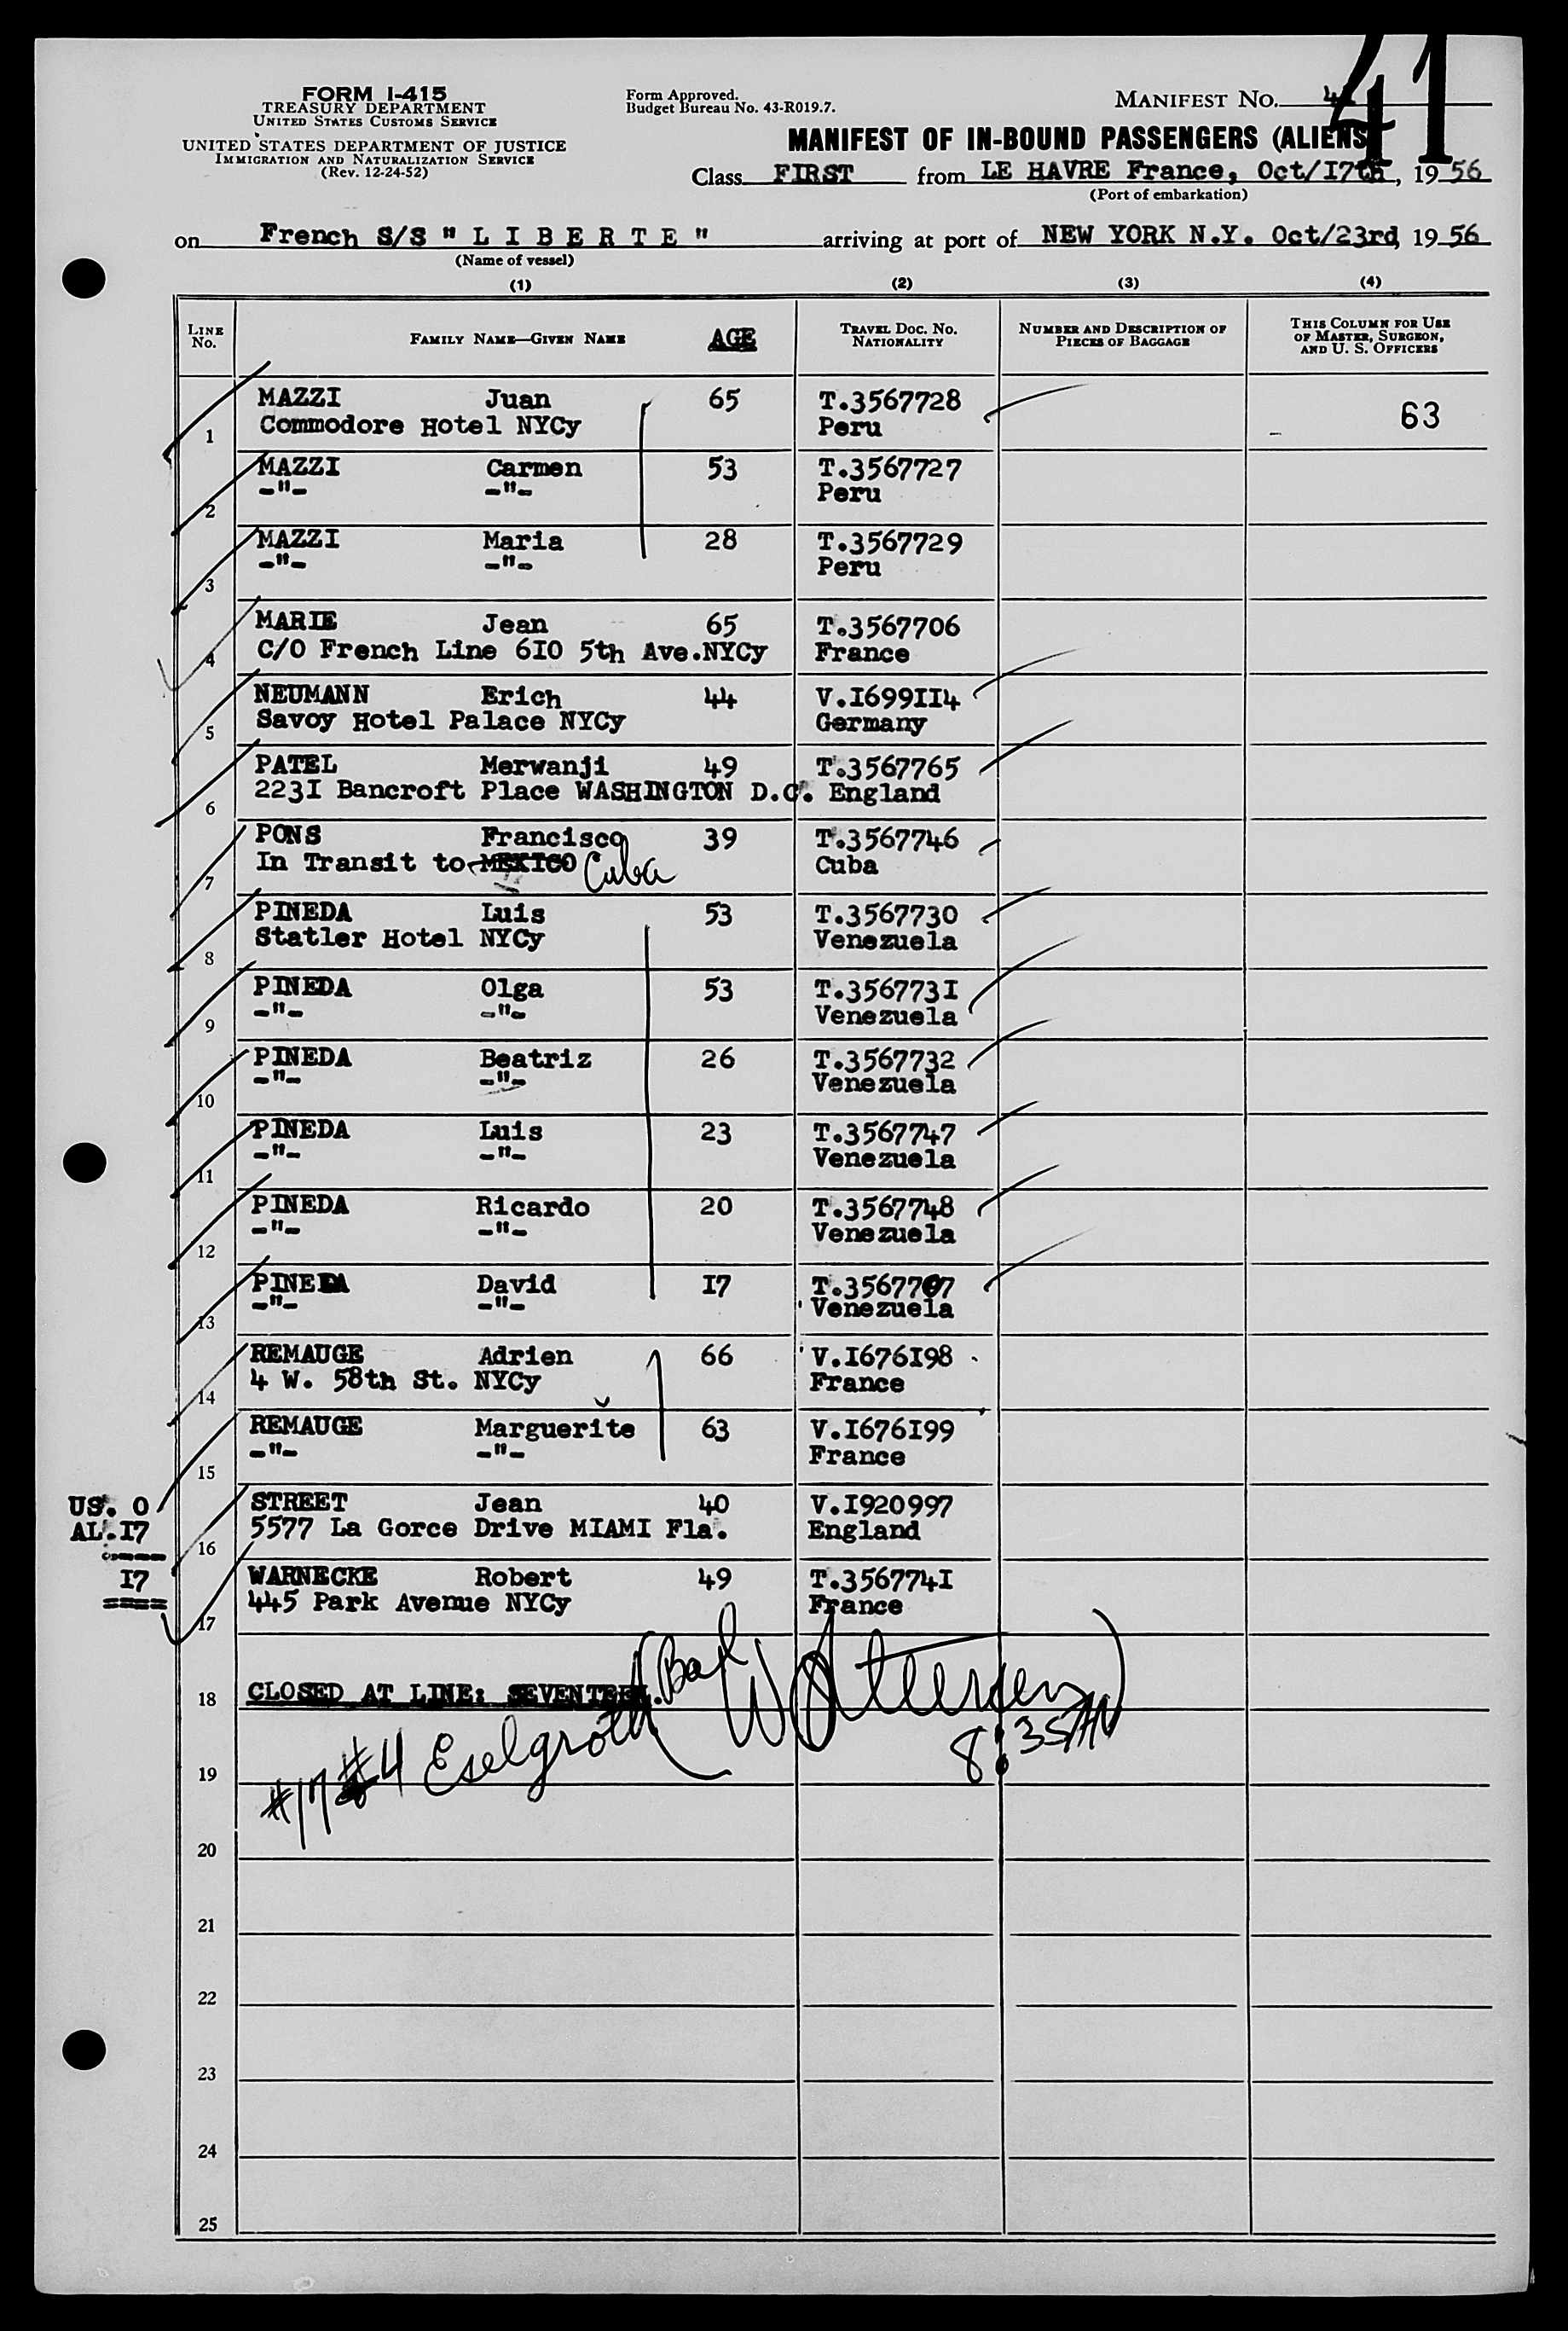 41
FORM I-415
TREASURY DEPARTMENT
UNITED STATES CUSTOMS SERVICE
UNITED STATES DEPARTMENT OF JUSTICE
IMMIGRATION AND NATURALIZATION SERVICE
(Rev. 12-24-52)
Form Approved.
Budget Bureau No. 43-R019.7.
MANIFEST NO. 41
MANIFEST OF IN-BOUND PASSENGERS (ALIENS
Class FIRST from LE HAVRE France, Oct/I7th, 19 56
(Port of embarkation)
on French S/S " L I B E R T E " arriving at port of NEW YORK N.Y. Oct/23rd, 19 56
(Name of vessel)
(1) (2) (3) (4)
LINE No. FAMILY NAME—GIVEN NAME AGE TRAVEL DOC. NO. NATIONALITY NUMBER AND DESCRIPTION OF PIECES OF BAGGAGE THIS COLUMN FOR USE OF MASTER, SURGEON, AND U. S. OFFICERS
MAZZI Juan 65 T.3567728 63
1 Commodore Hotel NYCy Peru
MAZZI Carmen 53 T.3567727
2 -"- -"- Peru
MAZZI Maria 28 T.3567729
3 -"- -"- Peru
MARIE Jean 65 T.3567706
4 C/O French Line 6I0 5th Ave.NYCy France
NEUMANN Erich 44 V.I699II4
5 Savoy Hotel Palace NYCy Germany
PATEL Merwanji 49 T.3567765
6 223I Bancroft Place WASHINGTON D.C. England
PONS Francisco 39 T.3567746
7 In Transit to MEXICO Cuba Cuba
PINEDA Luis 53 T.3567730
8 Statler Hotel NYCy Venezuela
PINEDA Olga 53 T.356773I
9 -"- -"- Venezuela
PINEDA Beatriz 26 T.3567732
10 -"- -"- Venezuela
PINEDA Luis 23 T.3567747
11 -"- -"- Venezuela
PINEDA Ricardo 20 T.3567748
12 -"- -"- Venezuela
PINEDA David I7 T.3567707
13 -"- -"- Venezuela
REMAUGE Adrien 66 V.I676I98
14 4 W. 58th St. NYCy France
REMAUGE Marguerite 63 V.I676I99
15 -"- -"- France
US. 0 STREET Jean 40 V.I920997
AL.I7 16 5577 La Gorce Drive MIAMI Fla. England
I7 WARNECKE Robert 49 T.356774I
17 445 Park Avenue NYCy France
18 CLOSED AT LINE: SEVENTEEN. (Bal
8:35AM
19 #17 #4 Eselgroth
20
21
22
23
24
25